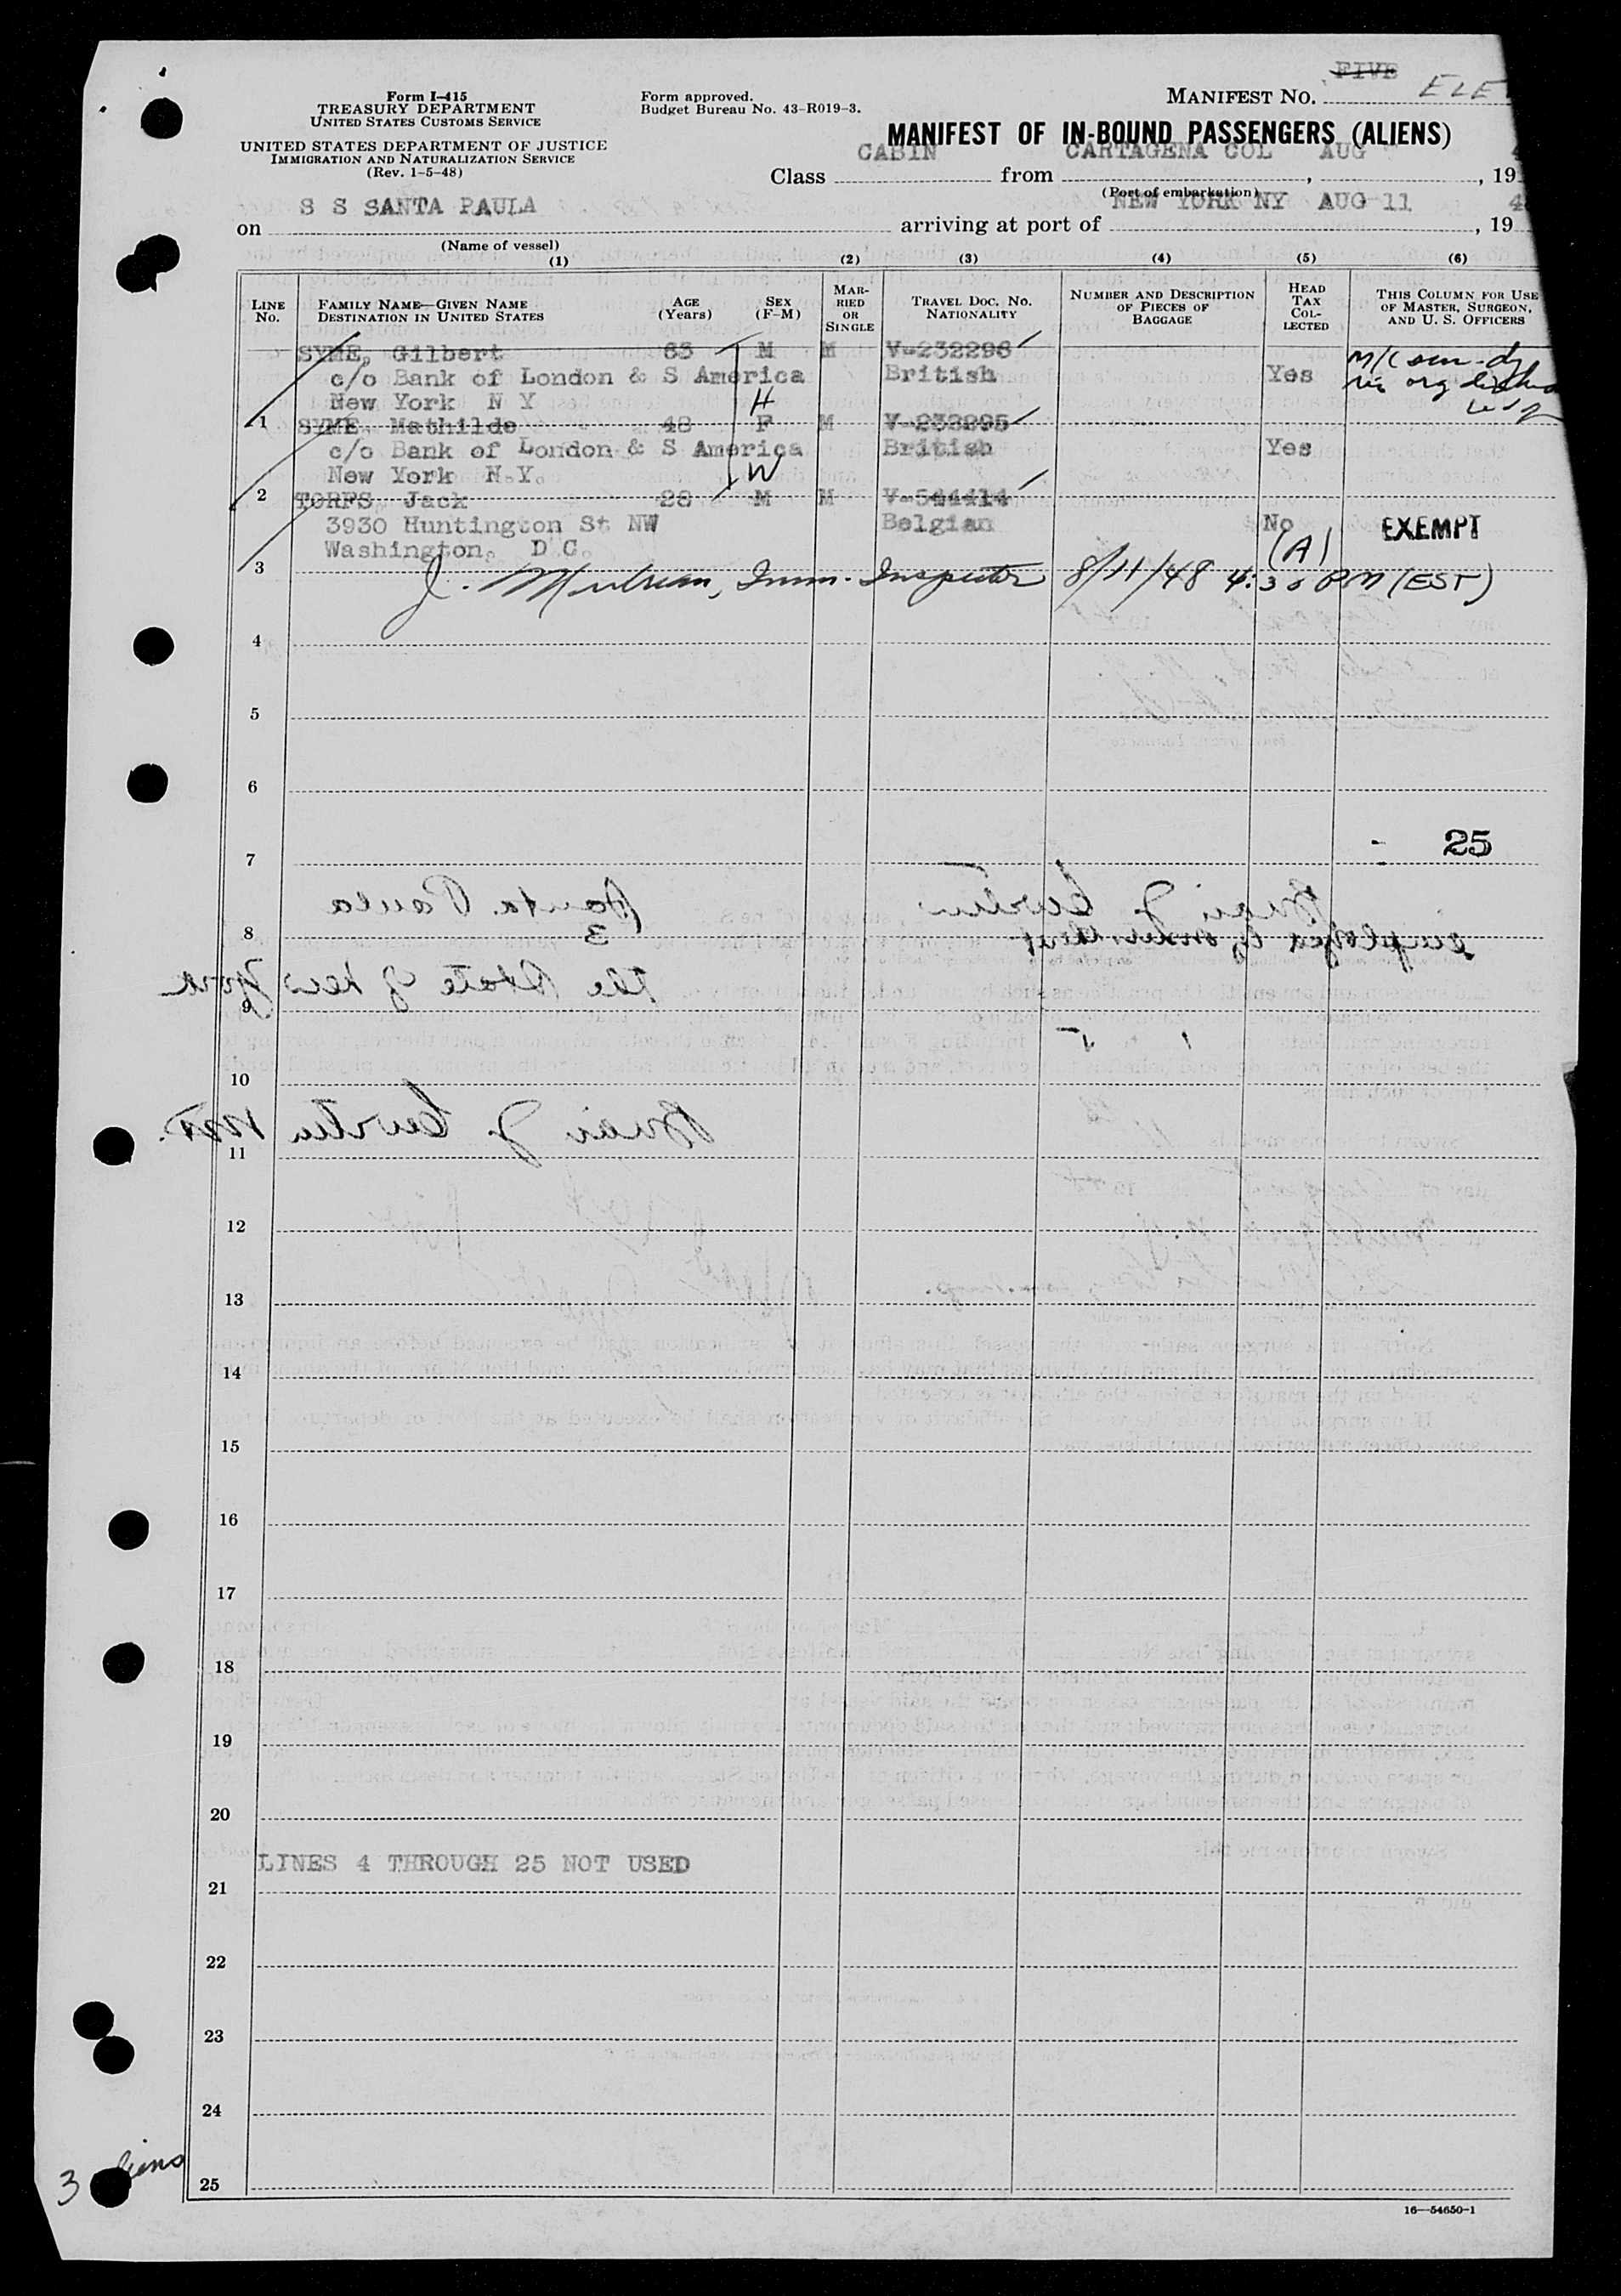 FIVE
Form I-415
TREASURY DEPARTMENT
UNITED STATES CUSTOMS SERVICE
UNITED STATES DEPARTMENT OF JUSTICE
IMMIGRATION AND NATURALIZATION SERVICE
(Rev. 1-5-48)
Form approved.
Budget Bureau No. 43-R019-3.
MANIFEST NO. ELE
MANIFEST OF IN-BOUND PASSENGERS (ALIENS)
Class CABIN from CARTAGENA COL, AUG, 19
(Port of embarkation)
on S S SANTA PAULA arriving at port of NEW YORK NY AUG 11, 19 4
(Name of vessel)
(1) (2) (3) (4) (5) (6)
LINE No. FAMILY NAME—GIVEN NAME DESTINATION IN UNITED STATES AGE (Years) SEX (F-M) MARRIED OR SINGLE TRAVEL DOC. NO. NATIONALITY NUMBER AND DESCRIPTION OF PIECES OF BAGGAGE HEAD TAX COLLECTED THIS COLUMN FOR USE OF MASTER, SURGEON, AND U. S. OFFICERS
SYME, Gilbert 63 M M V-232296
c/o Bank of London & S America British Yes
New York N Y H
1 SYME Mathilde 48 F M V-232295
c/o Bank of London & S America British Yes
New York N.Y. W
2 TORFS Jack 28 M M V-544414
3930 Huntington St NW Belgian No EXEMPT
Washington, D C. (A)
3
Imm. Inspector 8/11/48 4:30 PM (EST)
4
5
6
25
7
Santa Paula
8 3
employed by
the State of New York
9
10
11
12
13
14
15
16
17
18
19
20
LINES 4 THROUGH 25 NOT USED
21
22
23
24
25
3 aliens
16—54650-1